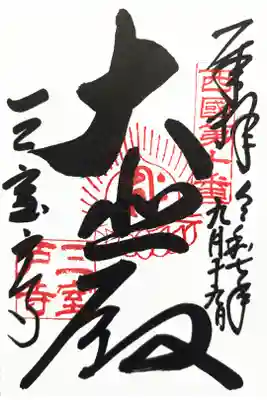 奉拝
令和七年
九月十五日
西國第十番
大悲殿
三室戸寺
三室
戸寺